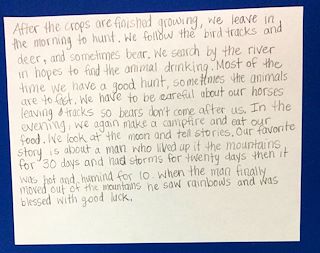 After the crops are finished growing, we leave in
the morning to hunt. We follow the bird tracks and
deer, and sometimes bear. We search by the river
in hopes to find the animal drinking. Most of the
time we have a good hunt, sometimes the animals
are to fast. We have to be careful about our horses
leaving tracks so bears don't come after us. In the
evening, we again make a campfire and eat our
food. We look at the moon and tell stories. Our favorite
story is about a man who lived up it the mountains
for 30 days and had storms for twenty days then it
was hot and humind for 10. When the man finally
moved out of the mountains he saw rainbows and was
blessed with good luck.